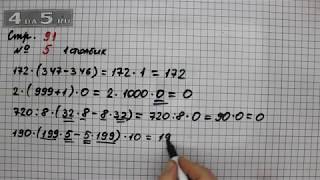 4da5.ru
Стр. 91
№ 5 1 столбик
172·(347-346)=172·1=172
2·(999+1)·0=2·1000·0=0
720:8·(32·8-8·32)=720:8·0=90·0=0
190·(199·5-5·199)·10=19